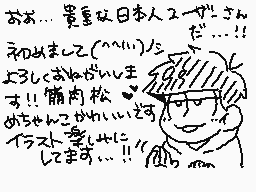 おお…貴重な日本人ユーザーさん
だ…!!
初めまして(^^(;;)ノシ
よろしくおねがいしま
す!!筋肉松
めちゃんこかわいいです
イラスト楽しみに
してます…!!